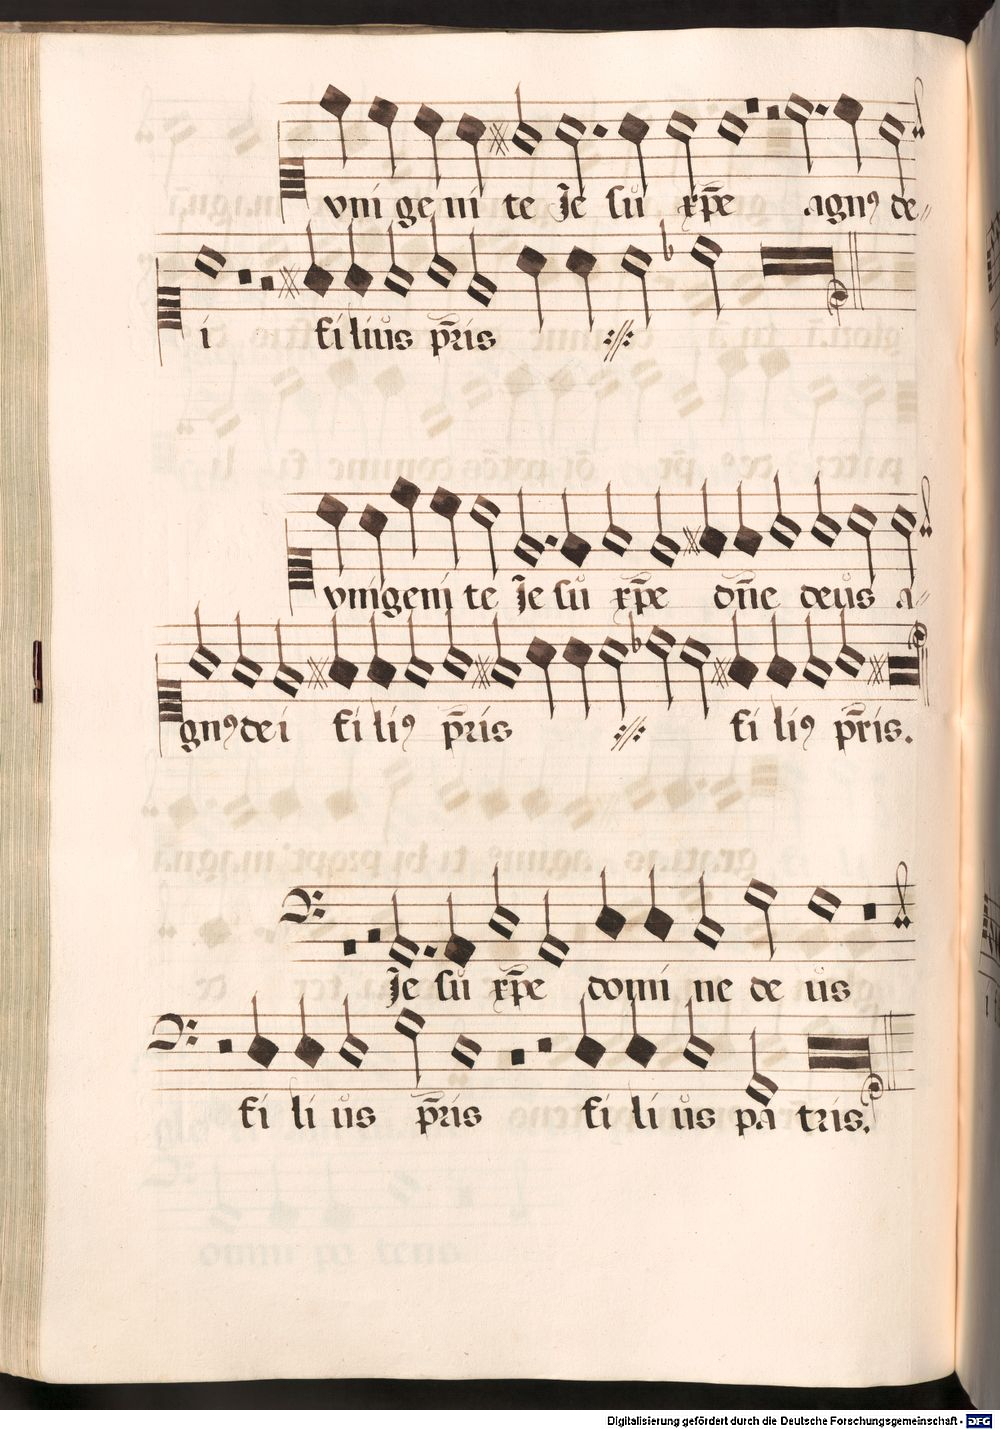 vni ge ni te Je sů xp̄e agnꝰ de〃
i fi liůs pr̄is ://:
vnigeni te Je sů xp̄e dn̄e deůs a〃
gnꝰ de i fi liꝰ pr̄is ://: fi liꝰ pr̄is.
Je sů xp̄e domi ne de ůs
fi li ůs pr̄is fi li ůs pa tris.
Digitalisierung gefördert durch die Deutsche Forschungsgemeinschaft - DFG